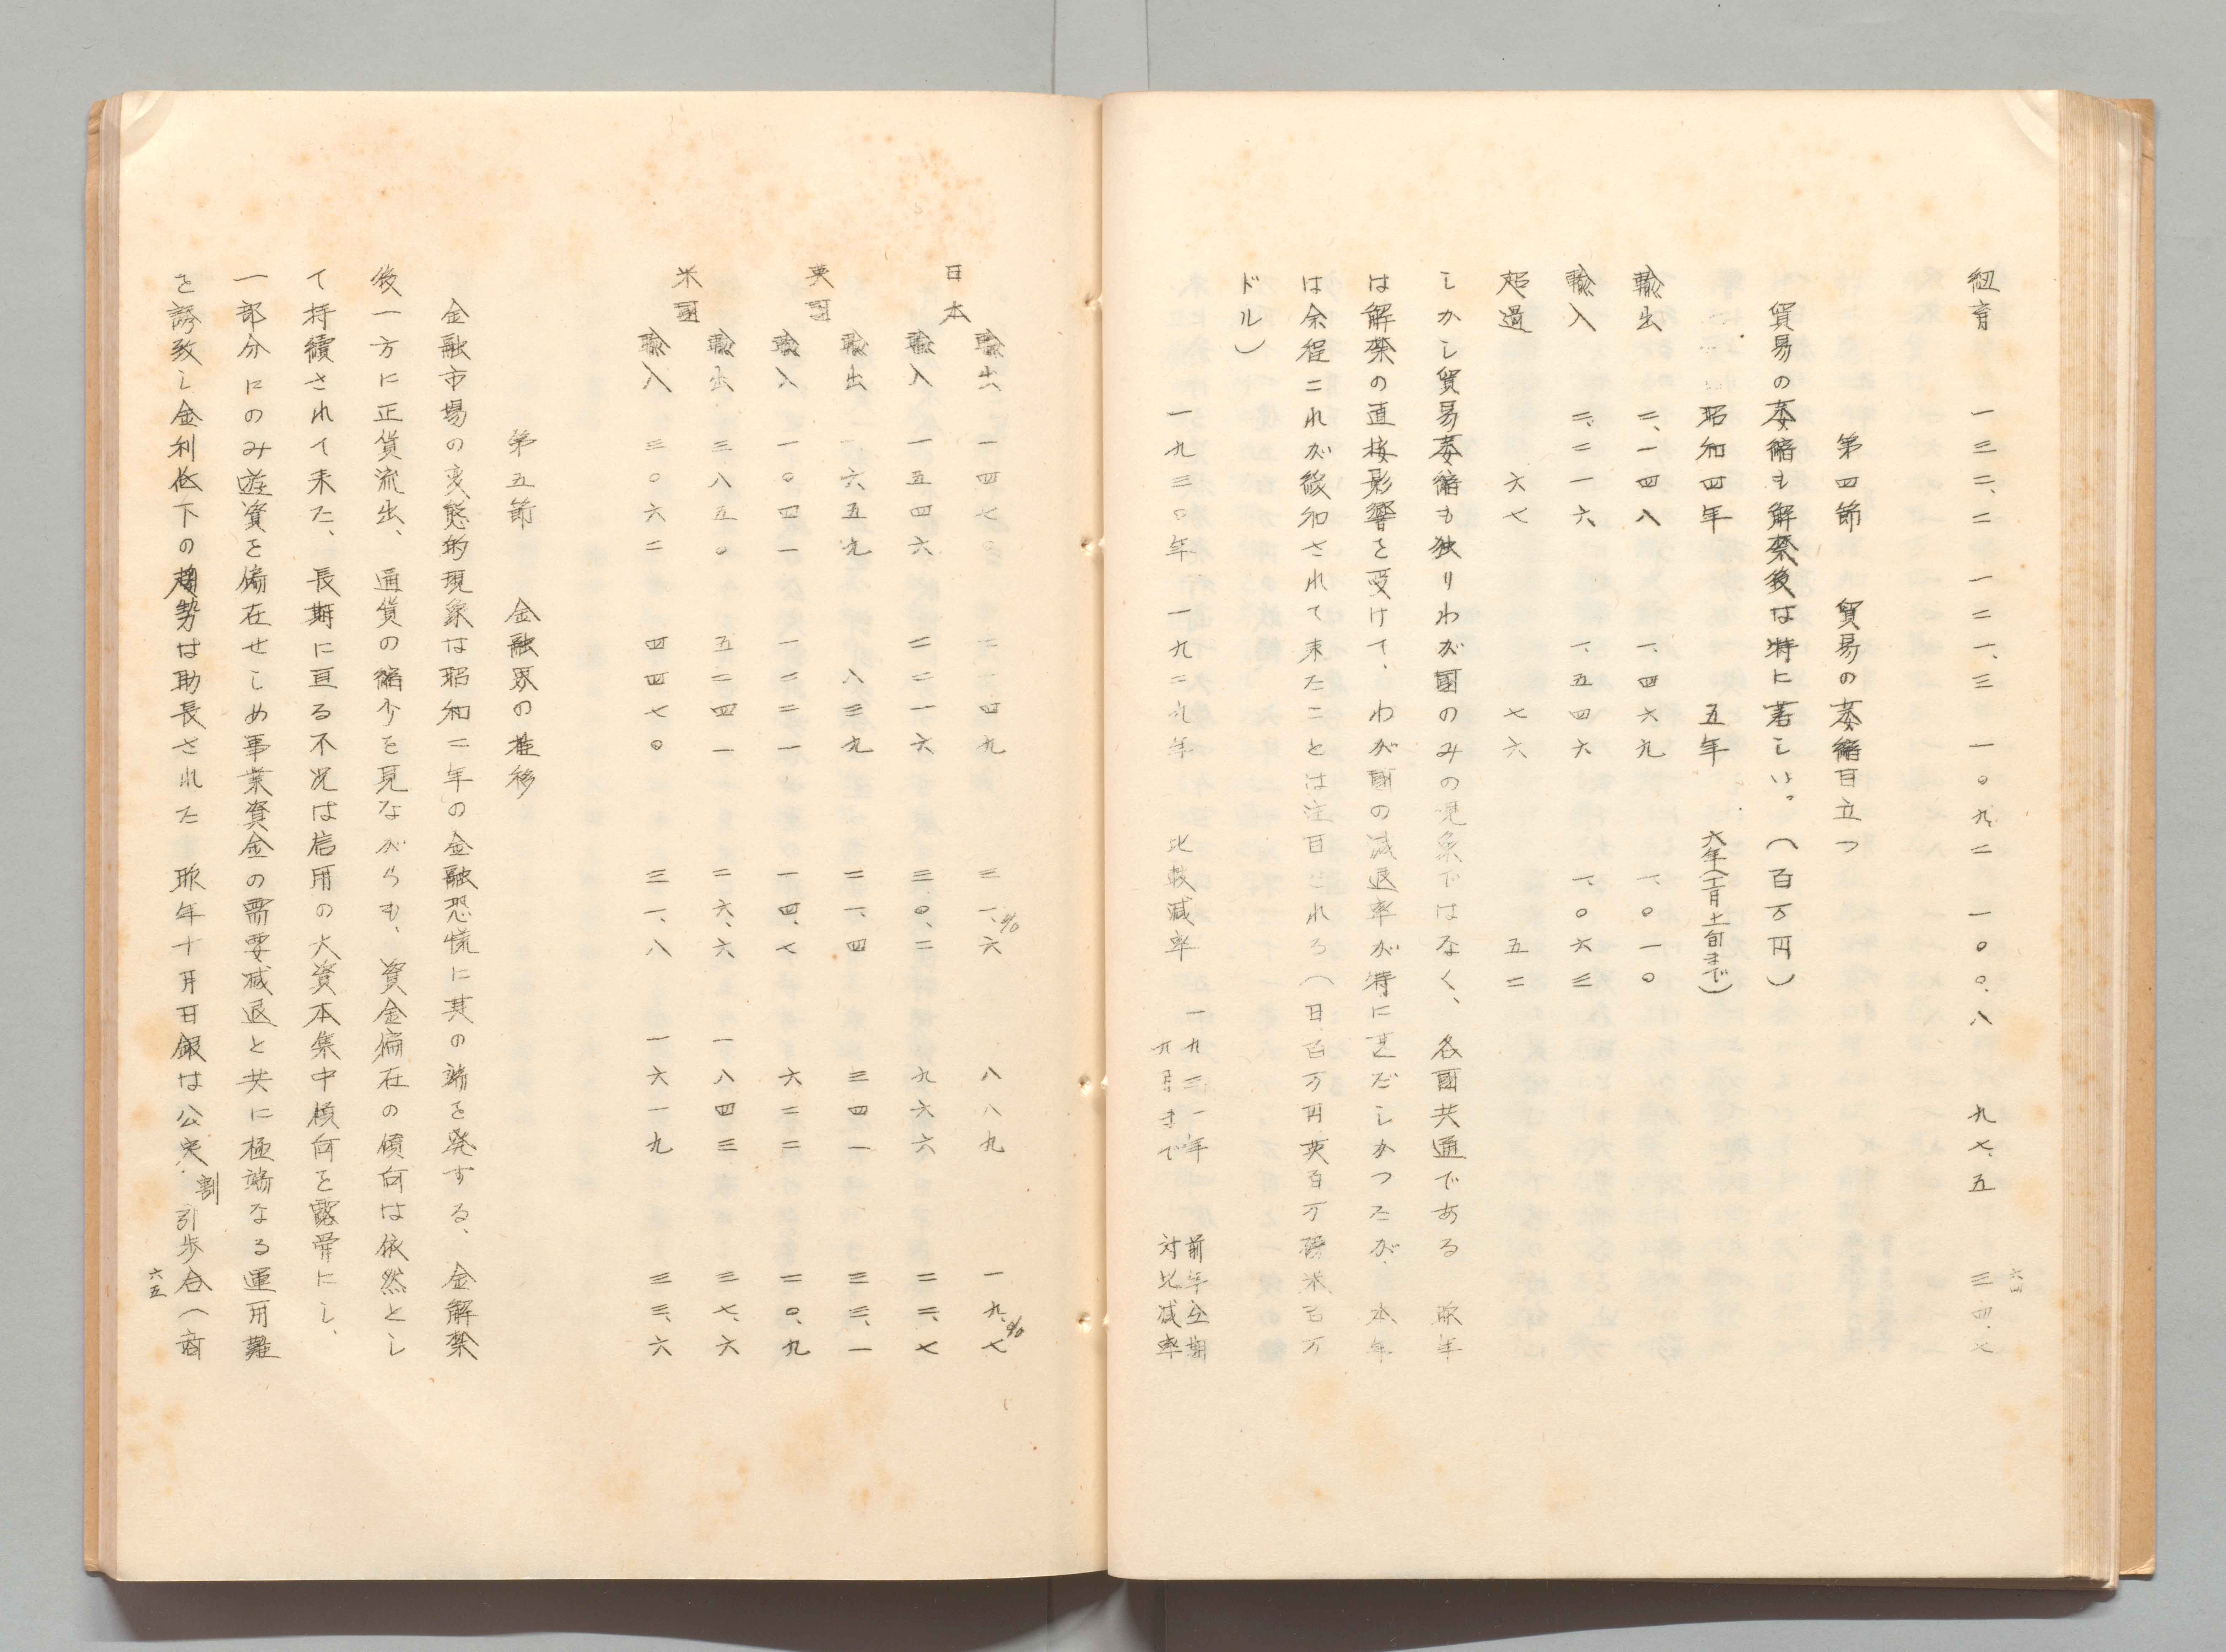 紐育 一三二、二 一二一、三 一〇九、二 一〇〇、八 九七、五 三四、七
第四節 貿易の萎縮目立つ
貿易の萎縮も解禁後は特に著しい。(百万円)
昭和四年 五年 六年(十一月上旬まで)
輸出 二、一四八 一、四六九 一、〇一〇
輸入 二、二一六 一、五四六 一、〇六三
超過 六七 七六 五二
しかし貿易萎縮も独りわが國のみの現象ではなく、各國共通である 昨年
は解禁の直接影響を受けて、わが國の減退率が特に甚だしかつたが、本年
は余程これが緩和されて来たことは注目される(日百万円英百万磅米百万
ドル)
一九三〇年 一九二九年 比較減率 一九三一年九月まで 前年仝期対比減率
六四
日本 輸出 一四七〇 二一四九 三一、六% 八八九 一九、七%
輸入 一五四六 二二一六 三〇、二 九六六 二二、七
英國 輸出 六五九 八三九 二一、四 三四一 三三、一
輸入 一〇四一 一二二一 一四、七 六二二 二〇、九
米國 輸出 三八五〇 五二四一 二六、六 一八四三 三七、六
輸入 三〇六二 四四七〇 三一、八 一六一九 三三、六
第五節 金融界の推移
金融市場の変態的現象は昭和二年の金融恐慌に其の端を発する、金解禁
後一方に正貨流出、通貨の縮少を見ながらも、資金偏在の傾向は依然とし
て持續されて来た、長期に亘る不況は信用の大資本集中傾向を露骨にし、
一部分にのみ遊資を偏在せしめ事業資金の需要減退と共に極端なる運用難
を誘致し金利低下の趨勢は助長された 昨年十月日銀は公定割引歩合(商
六五